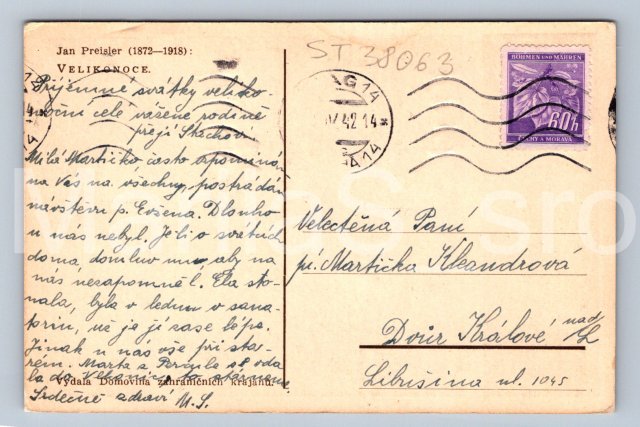 Jan Preisler (1872—1918):
VELIKONOCE.
Příjemné svátky veliko-
noční celé vážené rodině
přejí
Milá Martičko, často vzpomínám
na Vás na všechny, postrádám
návštěvu p. Evžena. Dlouho
u nás nebyl. Je-li o svátcích
doma, domluv mu, aby na
nás nezapomněl. Ela sto-
nala, byla v lednu v sana-
toriu, už je jí zase lépe.
Jinak u nás vše při sta-
rém. Marta a
la do
Srdečně zdraví M. S.
Vydala Domovina zahraničních krajanů.
ST 38063
14
42.14
14
BÖHMEN UND MÄHREN
60h
ČECHY A MORAVA
Velectěná Paní
pí. Martička Kleandrová
Dvůr Králové nad/L
Libušina ul. 1045